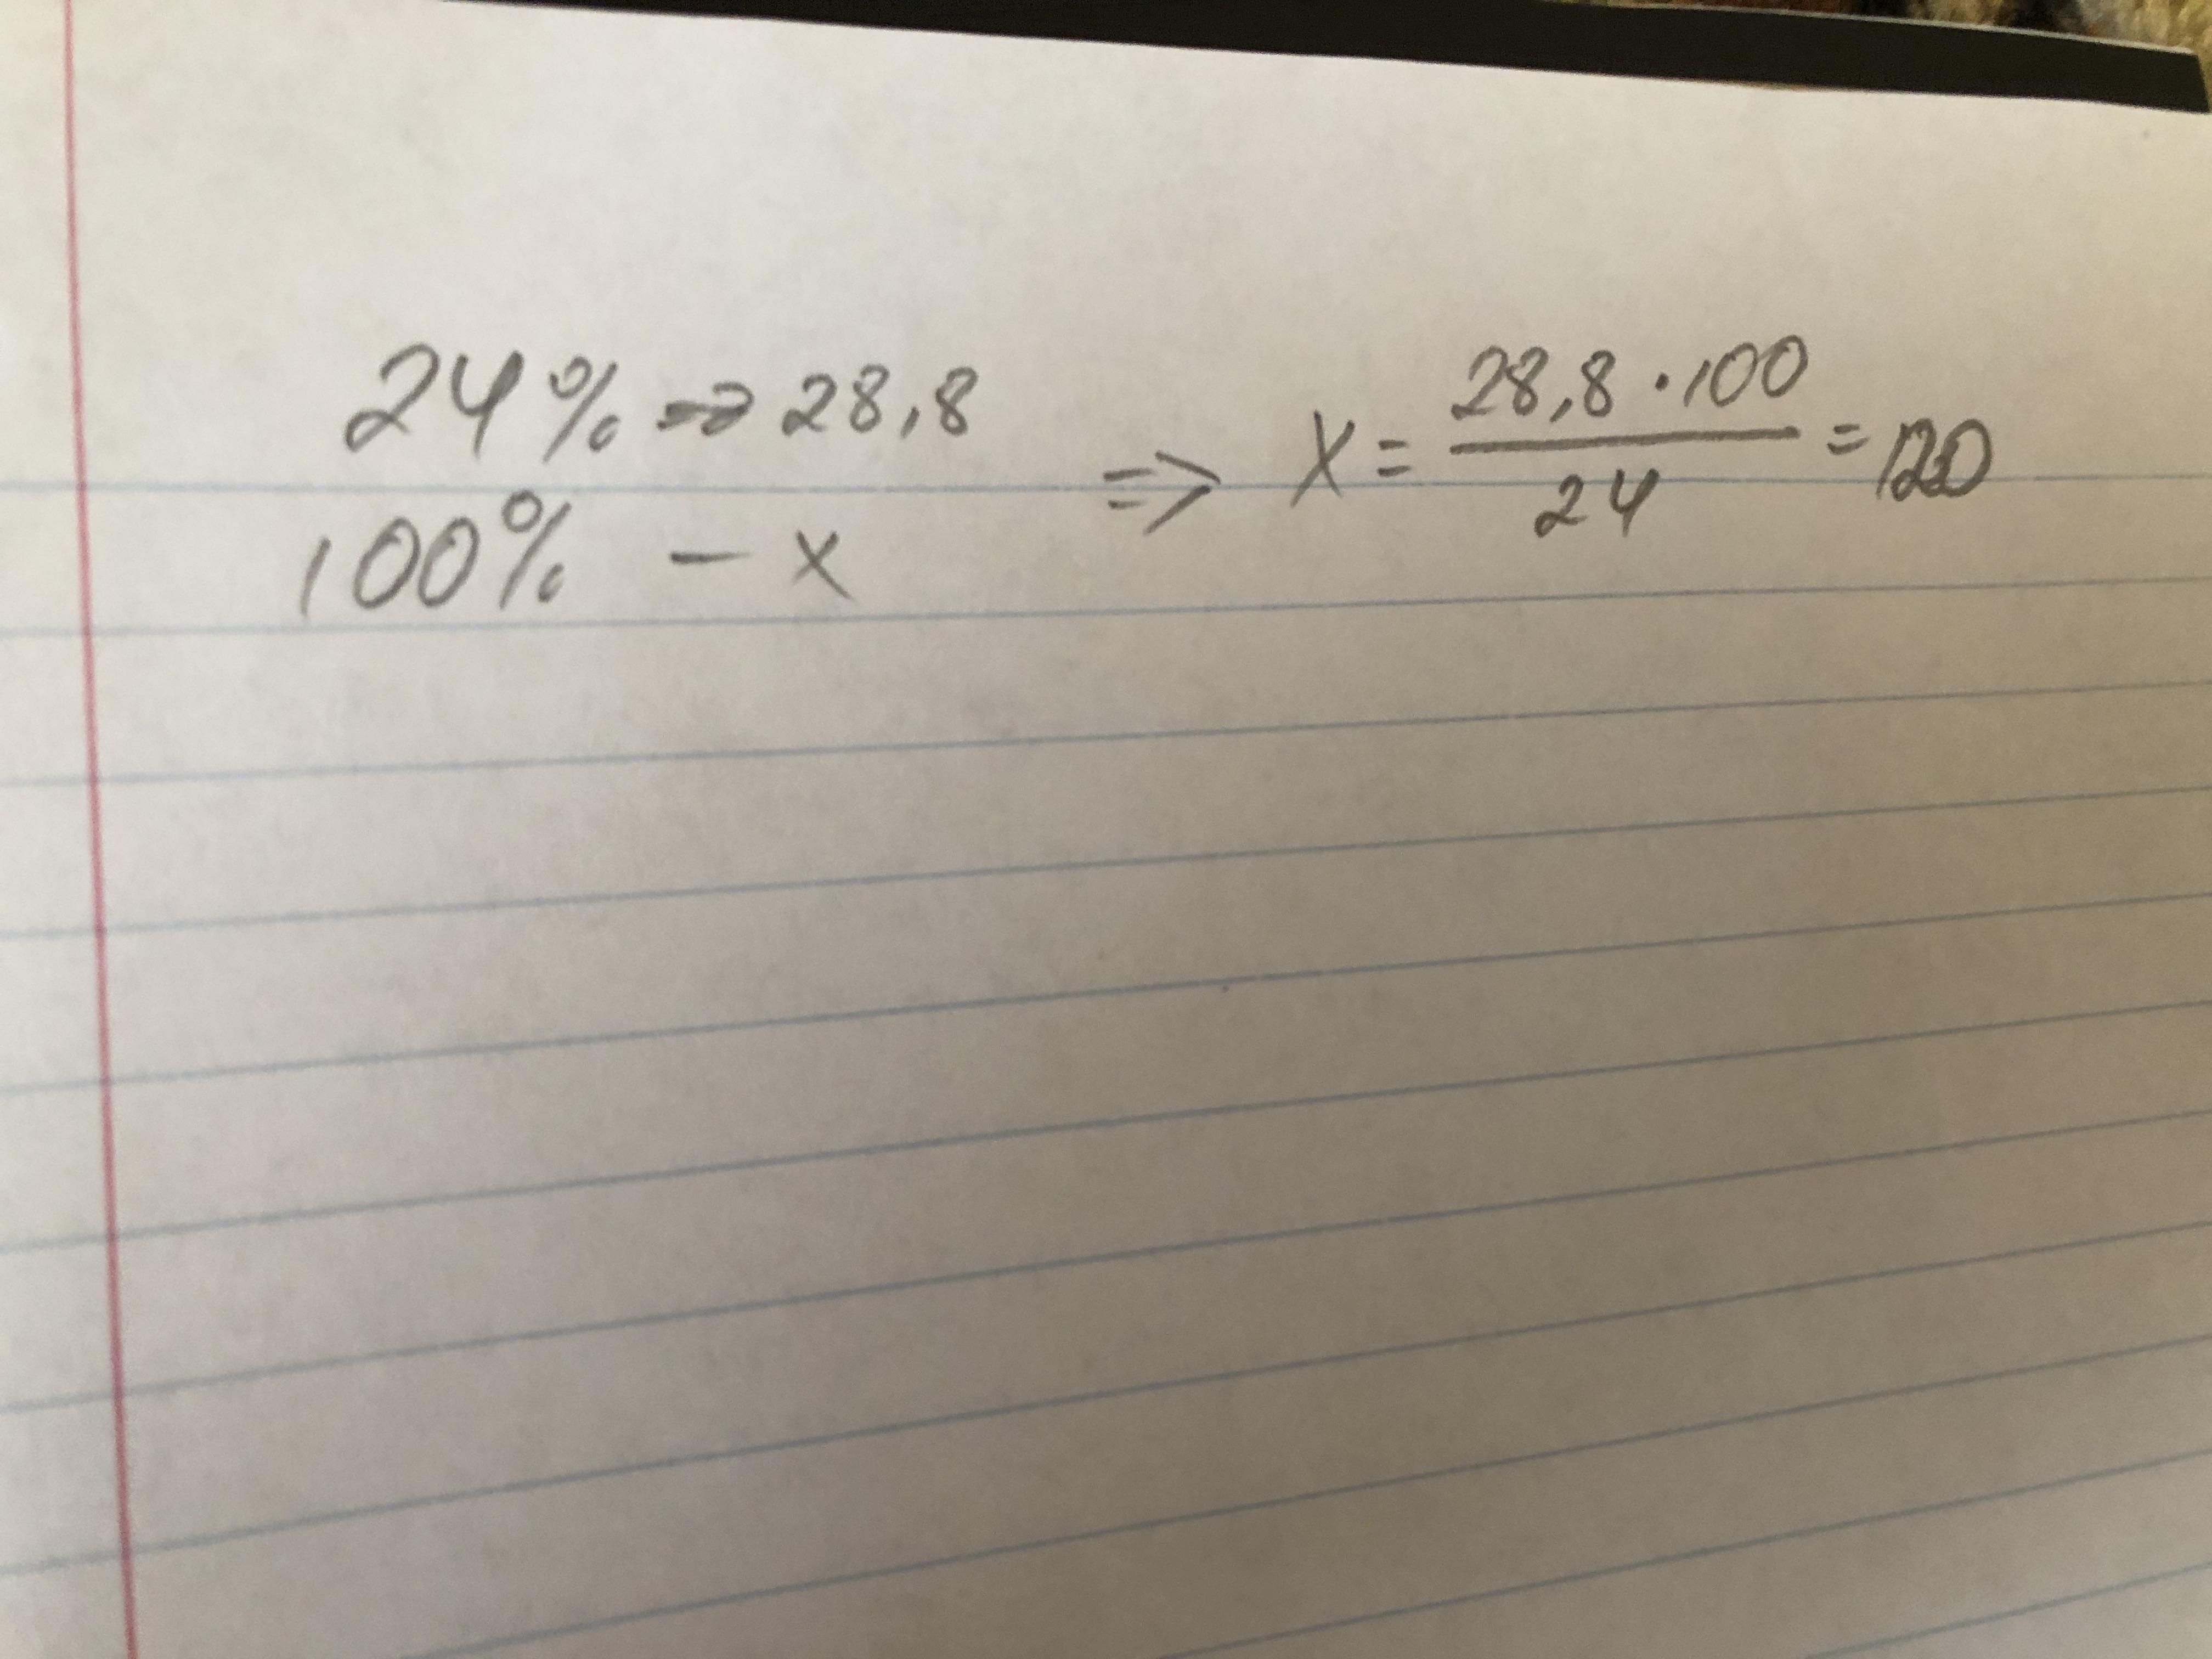 24% → 28,8
100% – x
=> x = 28,8 · 100 / 24 = 120